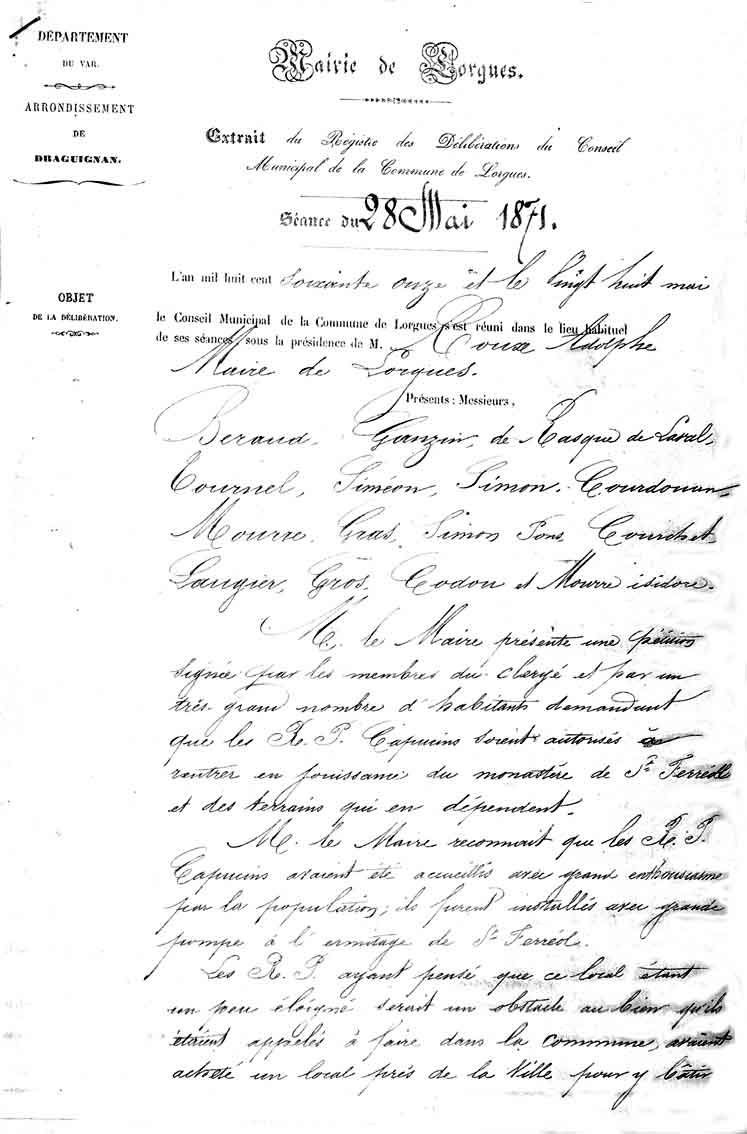 DÉPARTEMENT
DU VAR.
ARRONDISSEMENT
DE
DRAGUIGNAN.
Mairie de Lorgues.
Extrait du Régistre des Délibérations du Conseil
Municipal de la Commune de Lorgues.
Séance du 28 Mai 1871.
OBJET
DE LA DÉLIBÉRATION.
L'an mil huit cent soixante onze et le Vingt huit mai
le Conseil Municipal de la Commune de Lorgues s'est réuni dans le lieu habituel
de ses séances sous la présidence de M. Roux Adolphe
Maire de Lorgues.
Présents : Messieurs,
Beraud, Ganzin, de Rasque de Laval,
Tournel, Siméon, Simon, Courdouan,
Mourre, Gras, Simon Pons, Courchet,
Laugier, Gros, Codou et Mourre isidore.
M. le Maire présente une pétition
signée par les membres du clergé et par un
très grand nombre d'habitants demandant
que les R. P. Capucins soient autorisés à
rentrer en jouissance du monastère de St Ferréol
et des terrains qui en dépendent.
M. le Maire reconnait que les R. P.
Capucins avaient été accueillis avec grand enthousiasme
par la population; ils furent installés avec grande
pompe à l'ermitage de St Ferréol.
Les R. P. ayant pensé que ce local étant
un peu éloigné serait un obstacle au bien qu'ils
étaient appelés à faire dans la commune, avaient
acheté un local près de la Ville pour y bâtir